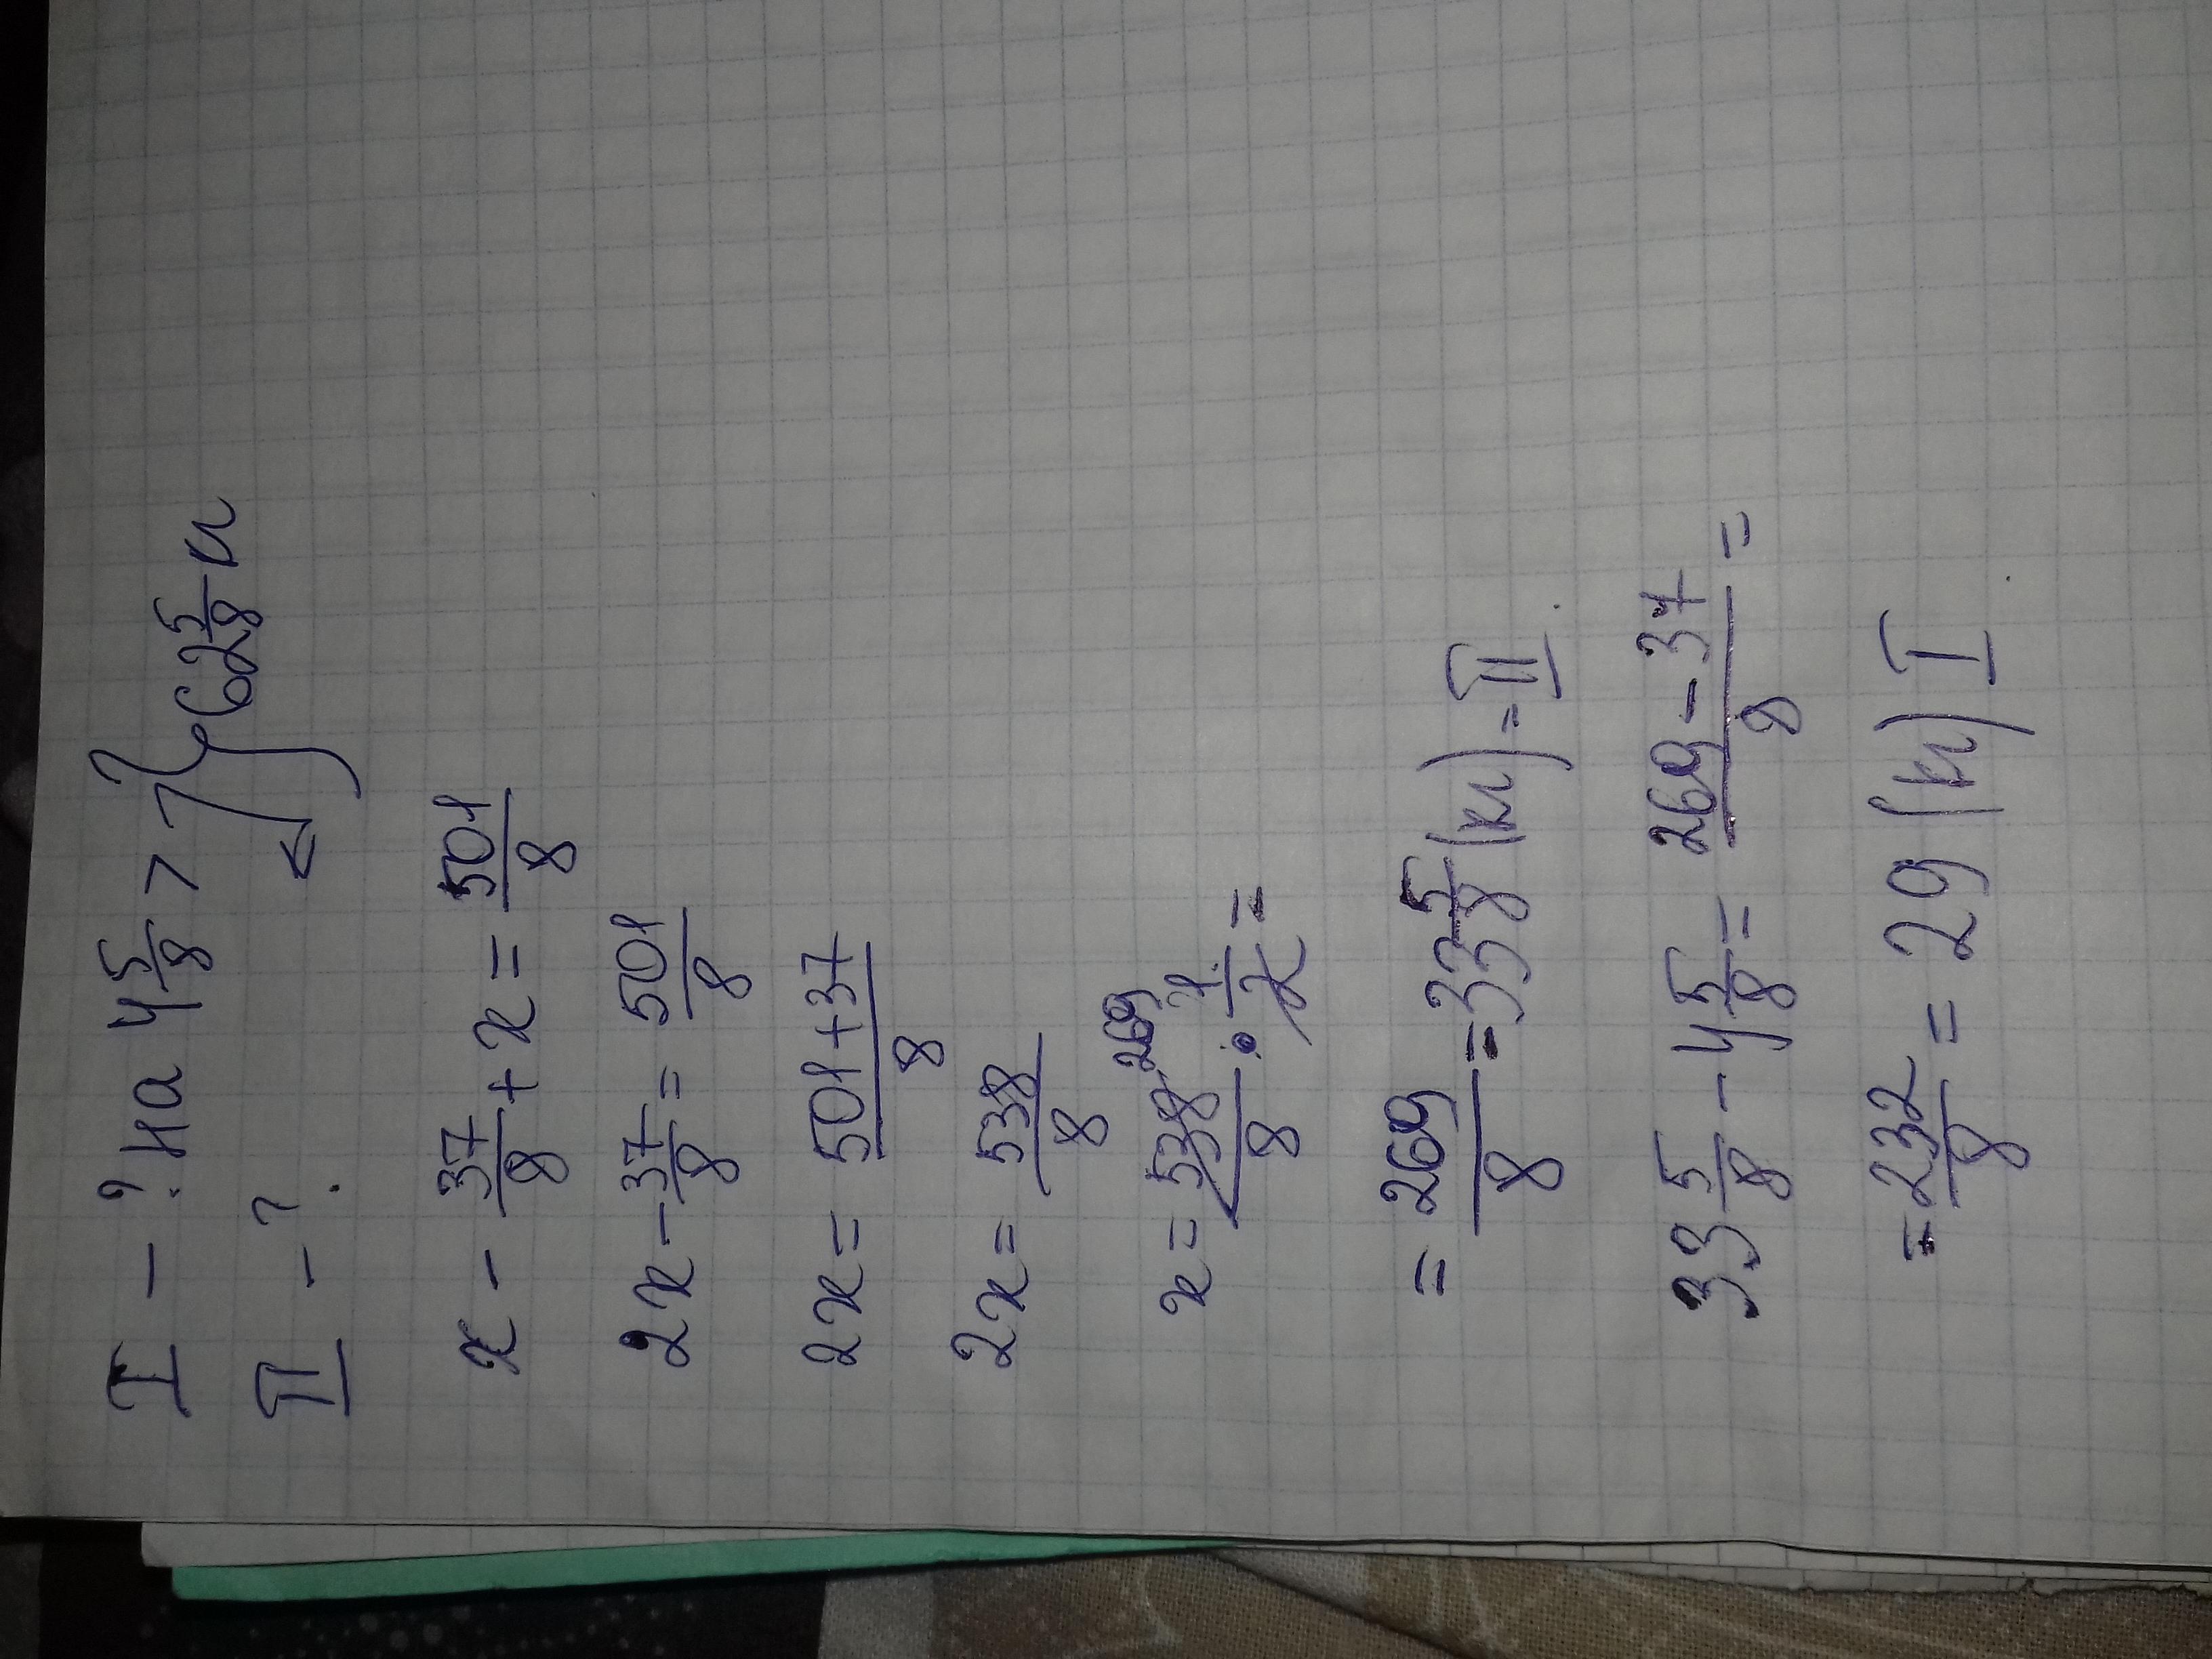 I - ? на 4 5/8 > ? } 62 5/8 л
II - ?
x - 37/8 + x = 501/8
2x - 37/8 = 501/8
2x = 501+37/8
2x = 538/8
x = 538/8 269 · 1/2 =
= 269/8 = 33 5/8 (кл) = II
33 5/8 - 4 5/8 = 269-37/8 =
= 232/8 = 29 (кл) I